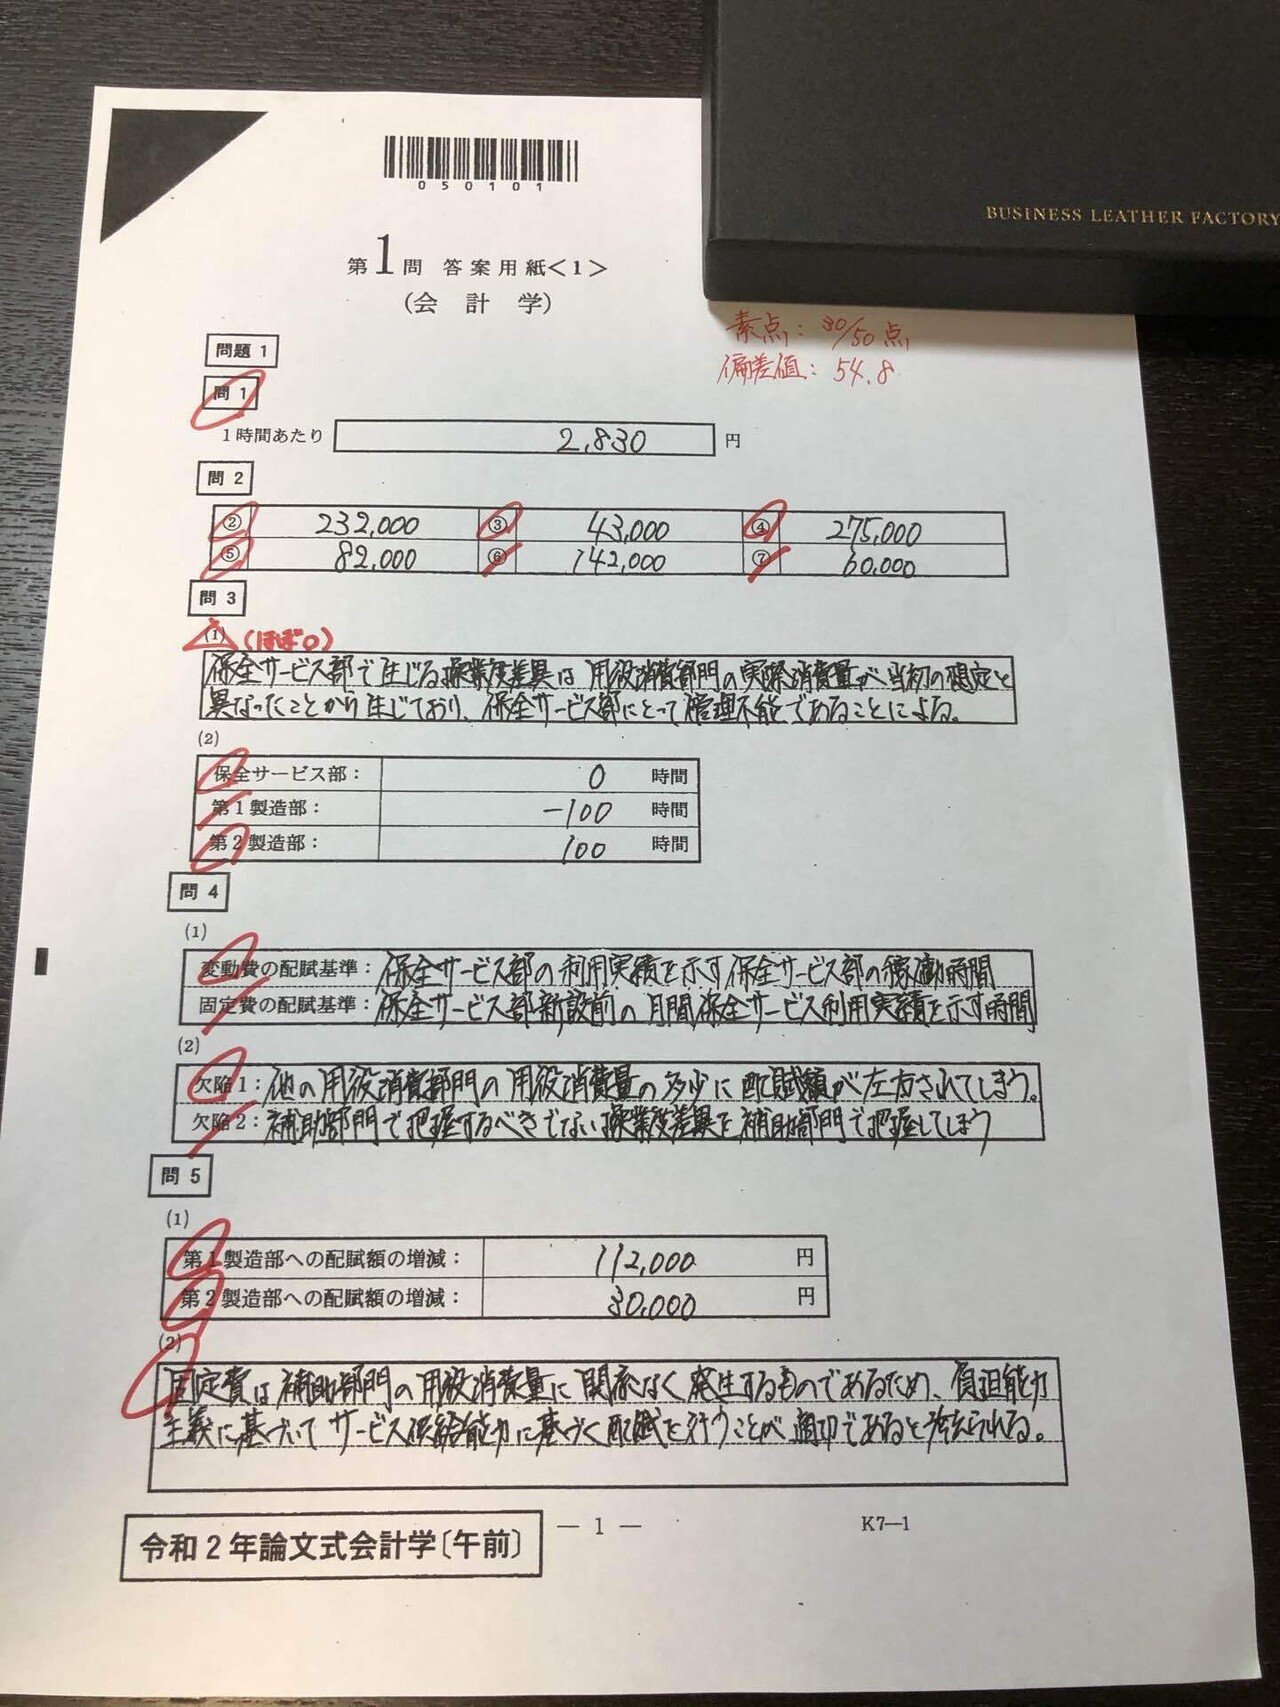 050101
BUSINESS LEATHER FACTORY
第1問 答案用紙<1>
(会計学)
素点: 30/50点
偏差値: 54.8
問題1
問1
1時間あたり 2,830 円
問2
② 232,000 ③ 43,000 ④ 275,000
⑤ 82,000 ⑥ 142,000 ⑦ 60,000
問3
(1) (ほぼ○)
保全サービス部で生じる操業度差異は用役消費部門の実際消費量が当初の想定と
異なったことから生じており、保全サービス部にとって管理不能であることによる。
(2)
保全サービス部: 0 時間
第1製造部: -100 時間
第2製造部: 100 時間
問4
(1)
変動費の配賦基準: 保全サービス部の利用実績を示す保全サービス部の稼働時間
固定費の配賦基準: 保全サービス部新設前の月間保全サービス利用実績を示す時間
(2)
欠陥1: 他の用役消費部門の用役消費量の多少に配賦額が左右されてしまう。
欠陥2: 補助部門で把握するべきでない操業度差異を補助部門で把握してしまう
問5
(1)
第1製造部への配賦額の増減: 112,000 円
第2製造部への配賦額の増減: 30,000 円
(2)
固定費は補助部門の用役消費量に関係なく発生するものであるため、負担能力
主義に基づいてサービス供給能力に基づく配賦を行うことが適切であると考えられる。
令和2年論文式会計学〔午前〕
— 1 —
K7—1